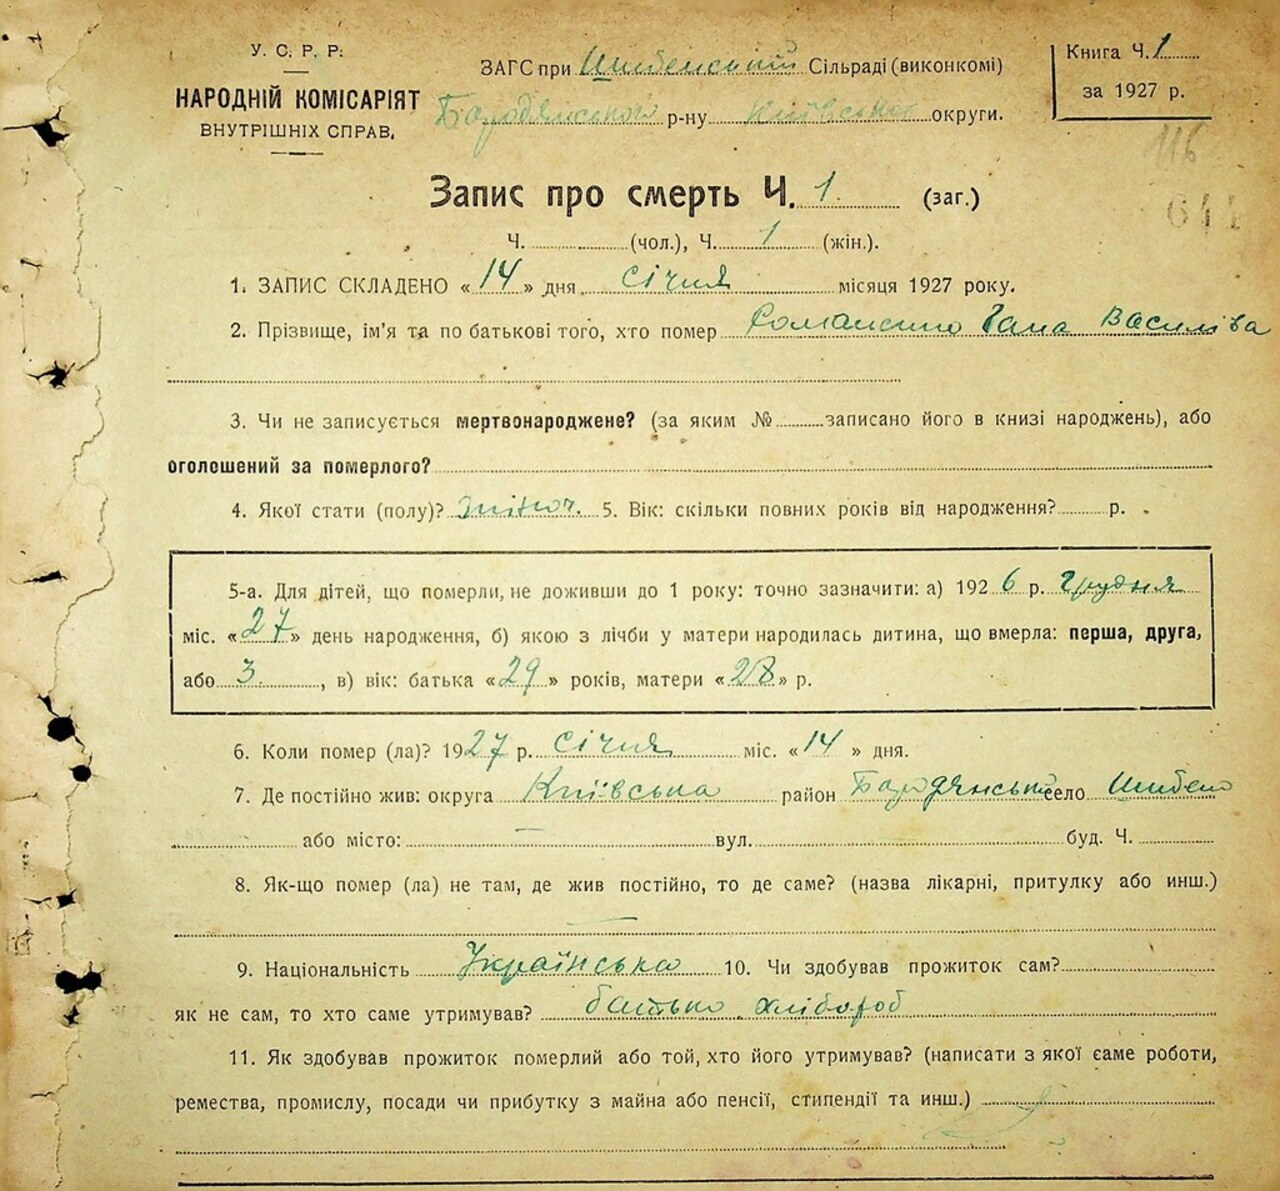 У. С. Р. Р.
НАРОДНІЙ КОМІСАРІЯТ
ВНУТРІШНІХ СПРАВ.
ЗАГС при Шибенській Сільраді (виконкомі)
Бородянського р-ну Київської округи.
Книга Ч. 1
за 1927 р.
116
Запис про смерть Ч. 1 (заг.)
Ч. (чол.), Ч. 1 (жін.).
1. ЗАПИС СКЛАДЕНО «14» дня січня місяця 1927 року.
2. Прізвище, ім'я та по батькові того, хто помер Гана Василіва
3. Чи не записується мертвонароджене? (за яким № записано його в книзі народжень), або
оголошений за померлого?
4. Якої стати (полу)? жіноч. 5. Вік: скільки повних років від народження? р.
5-а. Для дітей, що померли, не доживши до 1 року: точно зазначити: а) 1926 р. Грудня
міс. «27» день народження, б) якою з лічби у матери народилась дитина, що вмерла: перша, друга,
або 3, в) вік: батька «29» років, матери «28» р.
6. Коли помер (ла)? 1927 р. січня міс. «14» дня.
7. Де постійно жив: округа Київська район Бородянський село Шибено
або місто: — вул. буд. Ч.
8. Як-що помер (ла) не там, де жив постійно, то де саме? (назва лікарні, притулку або инш.)
—
9. Національність Українська 10. Чи здобував прожиток сам?
як не сам, то хто саме утримував? батько хлібороб
11. Як здобував прожиток померлий або той, хто його утримував? (написати з якої саме роботи,
ремества, промислу, посади чи прибутку з майна або пенсії, стипендії та инш.)